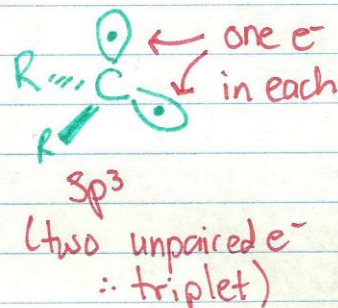 one e-
in each
R C
R
Sp³
(two unpaired e-
∴ triplet)